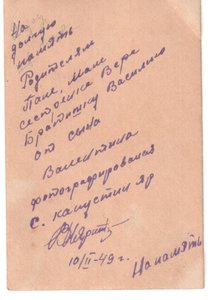 На
долгую
память
Родителям
Папе, Маме
сестренке Вере
Братишку Василию
от сына
Валентина
фотографировался
с. капустин яр
10/II-49 г.
На память